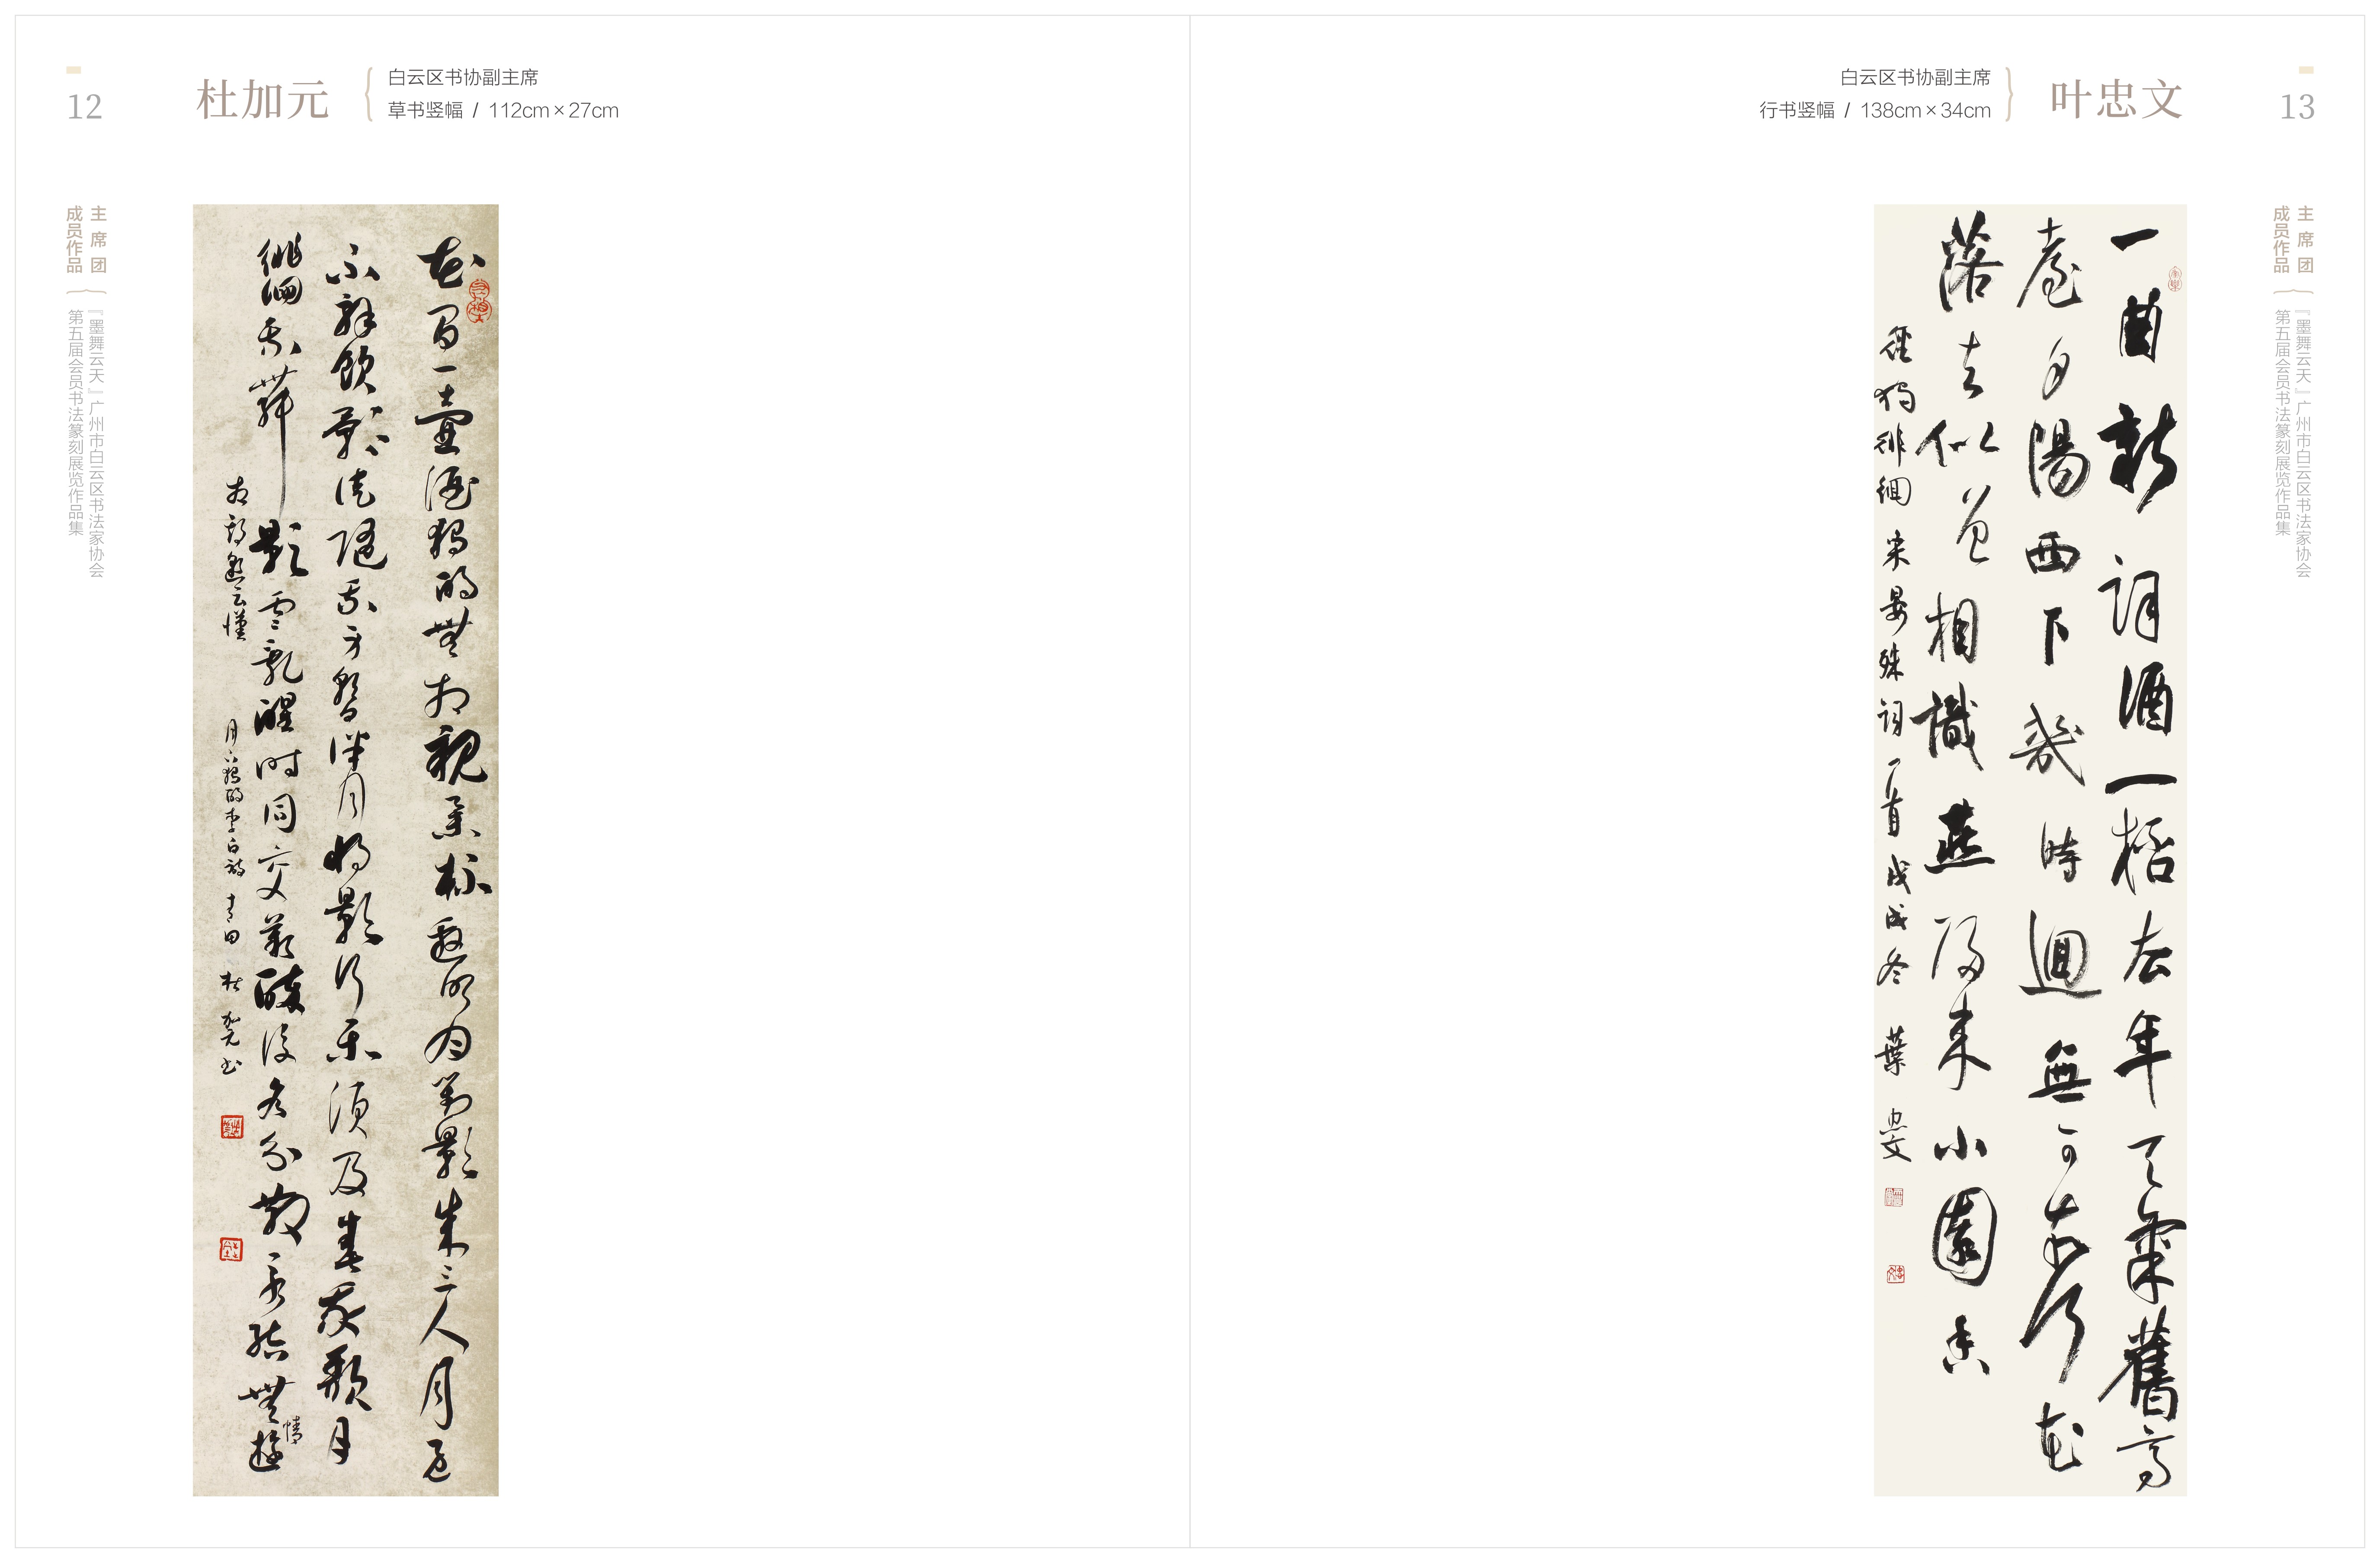 12
杜加元
白云区书协副主席
草书竖幅 / 112cm×27cm
主席团
成员作品
『墨舞云天』广州市白云区书法家协会
第五届会员书法篆刻展览作品集
花間一壺酒獨酌無相親舉杯邀明月對影成三人月既
不解飲影徒隨我身暫伴月將影行樂須及春我歌月
徘徊我舞影零亂醒時同交歡醉後各分散永結無情遊
相期邈云漢 月下獨酌李白詩 青田 杜加元书
白云区书协副主席
行书竖幅 / 138cm×34cm
叶忠文
13
主席团
成员作品
『墨舞云天』广州市白云区书法家协会
第五届会员书法篆刻展览作品集
一曲新詞酒一桮去年天氣舊亭
臺夕陽西下幾時迴無可奈何花
落去似曾相識燕歸來小園香
徑獨徘徊 宋晏殊詞一首戊戌冬 葉忠文